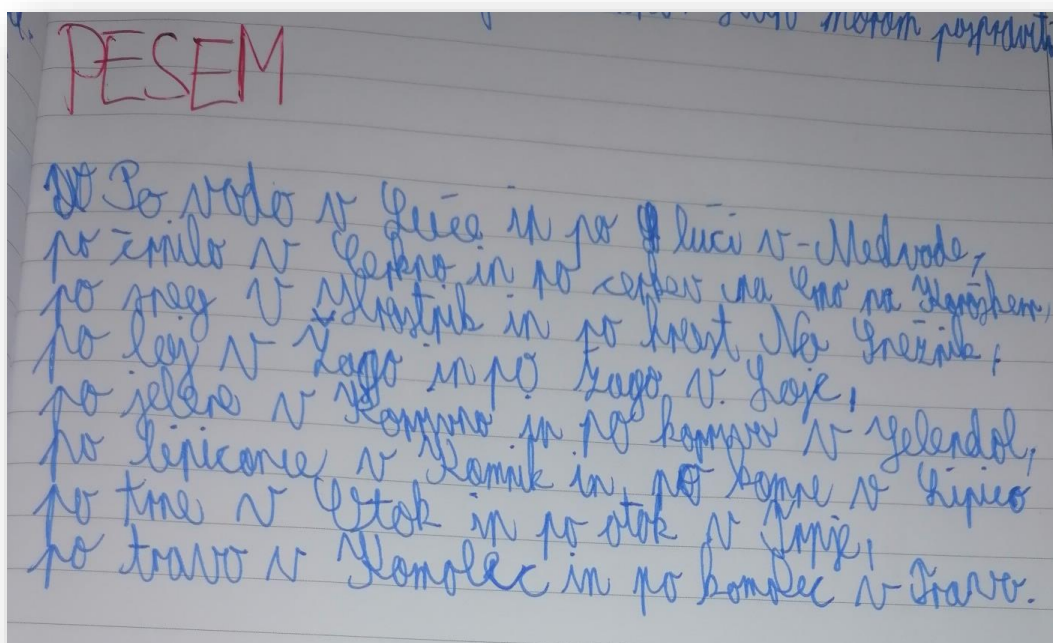 moram pospraviti
PESEM
Po vodo v Luče in po luči v Medvode,
po črnilo v Cerkno in po cerkev na Črno na Koroškem,
po sneg v Hrastnik in po hrast Na Snežnik,
po loj v Žago in po žago v Loje,
po jelene v Kopriv in po koprivo v Jelendol,
po lipicance v Kamnik in po kamne v Lipico
po trne v Otok in po otok v Trnje,
po travo v Komolec in po komolec v Travo.